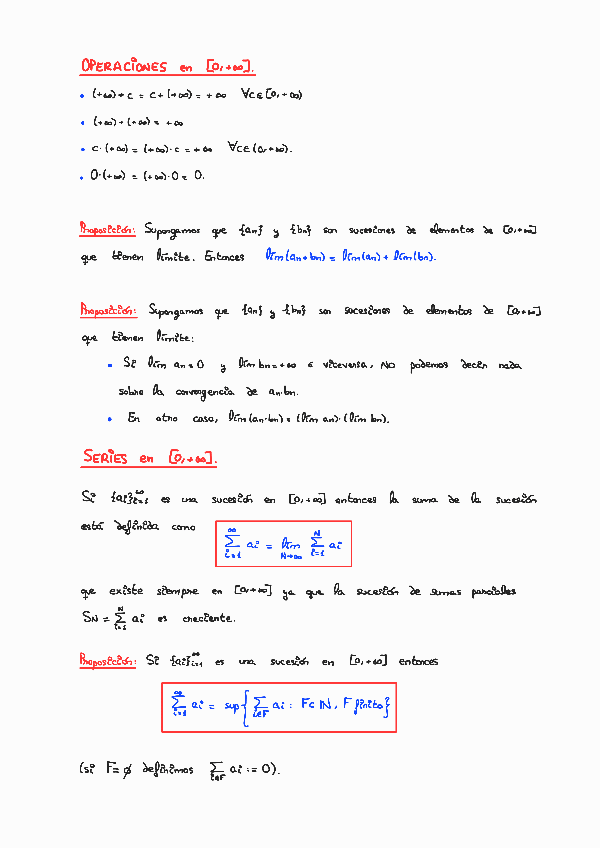 OPERACIONES en [0,+∞].
• (+∞)+c = c+(+∞) = +∞ ∀c∈[0,+∞)
• (+∞)+(+∞) = +∞
• c·(+∞) = (+∞)·c = +∞ ∀c∈(0,+∞).
• 0·(+∞) = (+∞)·0 = 0.
Proposición: Supongamos que {an} y {bn} son sucesiones de elementos de [0,+∞]
que tienen límite. Entonces lím(an+bn) = lím(an) + lím(bn).
Proposición: Supongamos que {an} y {bn} son sucesiones de elementos de [0,+∞]
que tienen límite:
• Si lím an = 0 y lím bn = +∞ o viceversa, NO podemos decir nada
sobre la convergencia de an·bn.
• En otro caso, lím(an·bn) = (lím an)·(lím bn).
SERIES en [0,+∞].
Si {ai}_{i=1}^∞ es una sucesión en [0,+∞] entonces la suma de la sucesión
está definida como ∑_{i=1}^∞ ai = lím_{N→∞} ∑_{i=1}^N ai
que existe siempre en [0,+∞] ya que la sucesión de sumas parciales
SN = ∑_{i=1}^N ai es creciente.
Proposición: Si {ai}_{i=1}^∞ es una sucesión en [0,+∞] entonces
∑_{i=1}^∞ ai = sup{∑_{i∈F} ai : F⊂ℕ, F finito}
(si F=∅ definimos ∑_{i∈F} ai := 0).